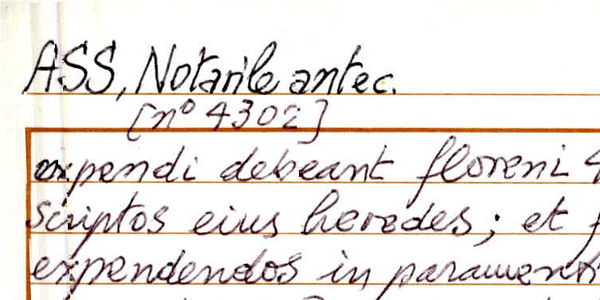 ASS, Notarile antec.
[nº 4302]
expendi debeant floreni
scriptos eius heredes; et
expendendos in parament